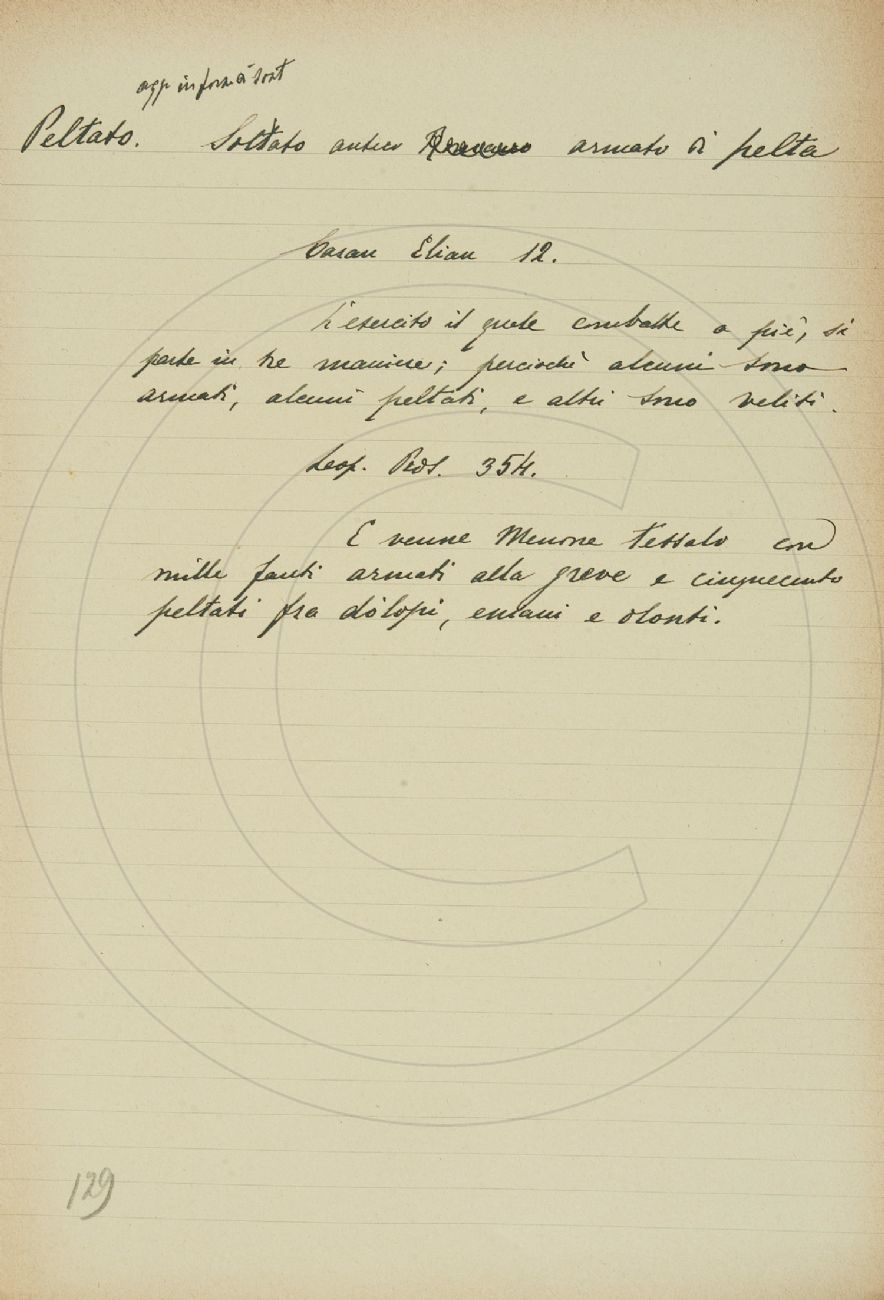 agg in forza di sost
Peltato. Soldato antico armato di pelta
Caran Elian 12.
L'esercito il quale combatte a piè, si
parte in tre maniere; perciochè alcuni sono
armati, alcuni peltati, e altri sono veliti.
Leop. Pros. 354.
E venne Menone tessalo con
mille fanti armati alla greve e cinquecento
peltati fra dólopi, eniani e olonti.
129